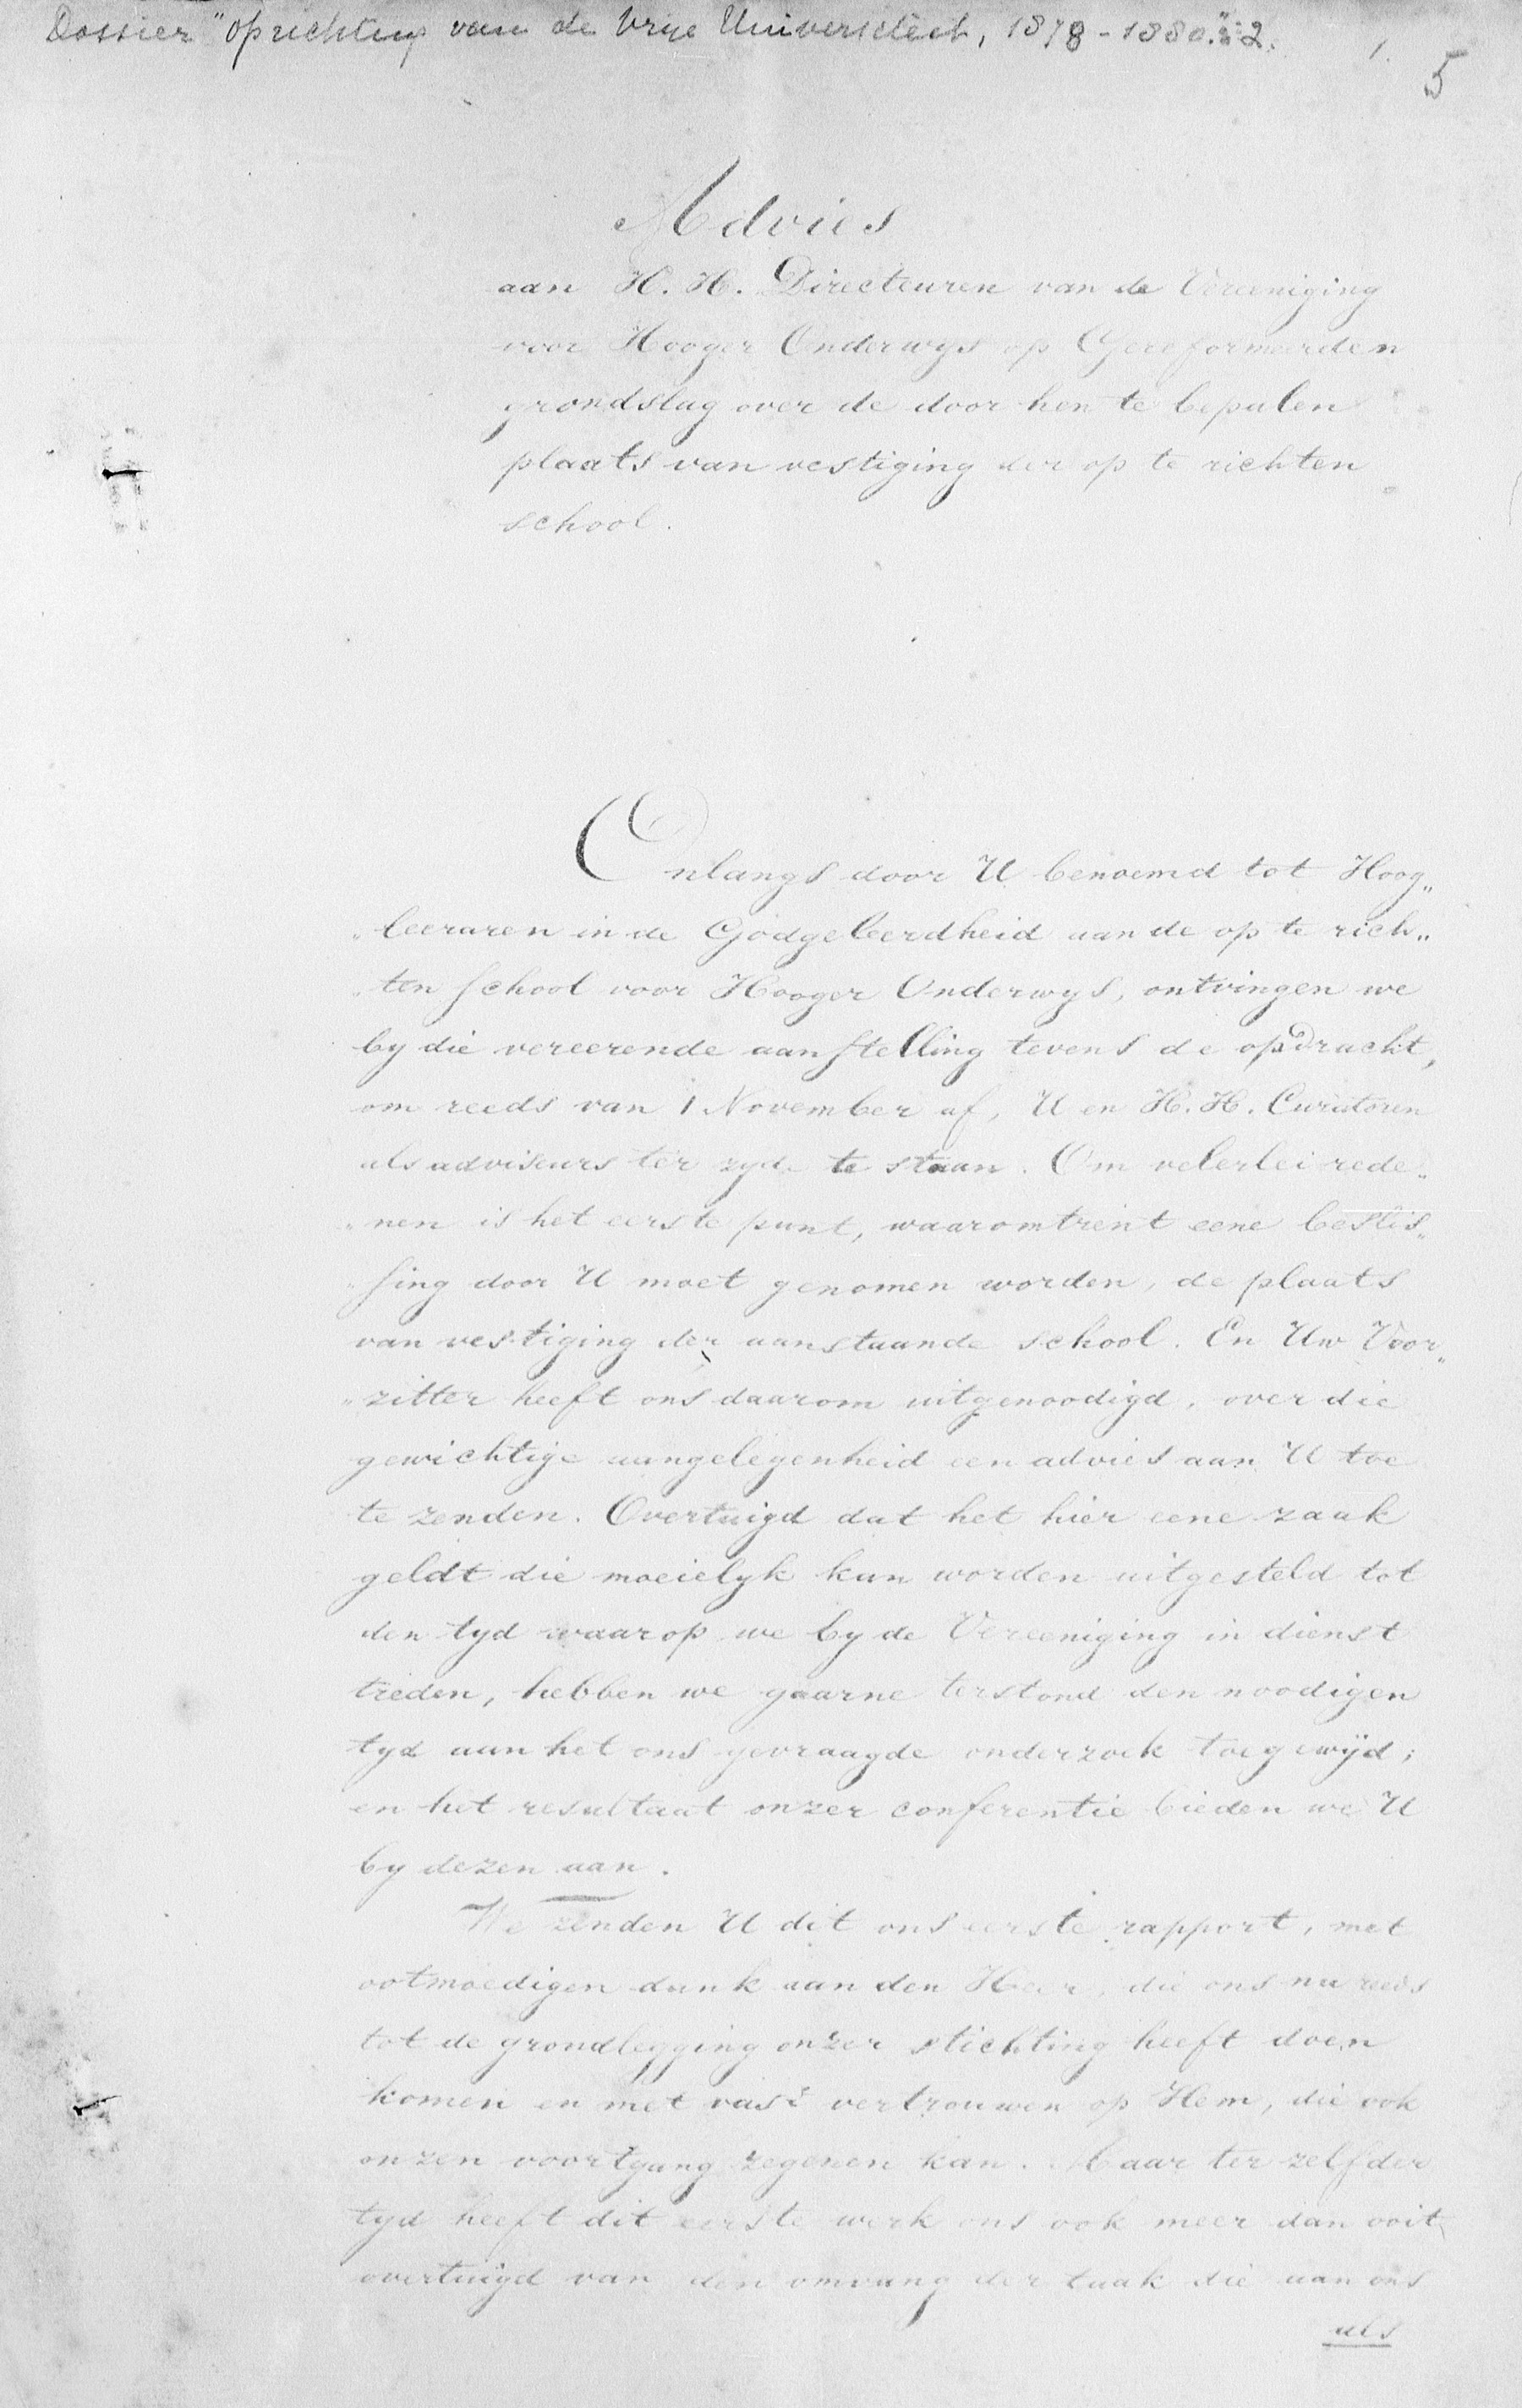 Dossier "oprichting van de Vrije Universiteit, 1878-1880." 2.
1.
5
Advies
aan H. H. Directeuren van de Vereeniging
voor Hooger Onderwys op Gereformeerden
grondslag over de door hen te bepalen
plaats van vestiging der op te richten
school.
Onlangs door U benoemd tot Hoog„
„leeraren in de Godgeleerdheid aan de op te rich„
„ten school voor Hooger Onderwys, ontvingen we
by die vereerende aanstelling tevens de opdracht,
om reeds van 1 November af, U en H. H. Curatoren
als adviseurs ter zyde te staan. Om velerlei rede„
„nen is het eerste punt, waaromtrent eene beslis„
„sing door U moet genomen worden, de plaats
van vestiging der aanstaande school. En Uw Voor„
„zitter heeft ons daarom uitgenoodigd, over die
gewichtige aangelegenheid een advies aan U toe
te zenden. Overtuigd dat het hier eene zaak
geldt die moeielyk kan worden uitgesteld tot
den tyd waarop we by de Vereeniging in dienst
treden, hebben we gaarne terstond den noodigen
tyd aan het ons gevraagde onderzoek toegewÿd;
en het resultaat onzer conferentie bieden we U
by dezen aan.
We zenden U dit ons eerste rapport, met
ootmoedigen dank aan den Heer, die ons nu reeds
tot de grondlegging onzer stichting heeft doen
komen en met vast vertrouwen op Hem, die ook
onzen voortgang zegenen kan. Maar ter zelfder
tyd heeft dit eerste werk ons ook meer dan ooit
overtuigd van den omvang der taak die aan ons
als